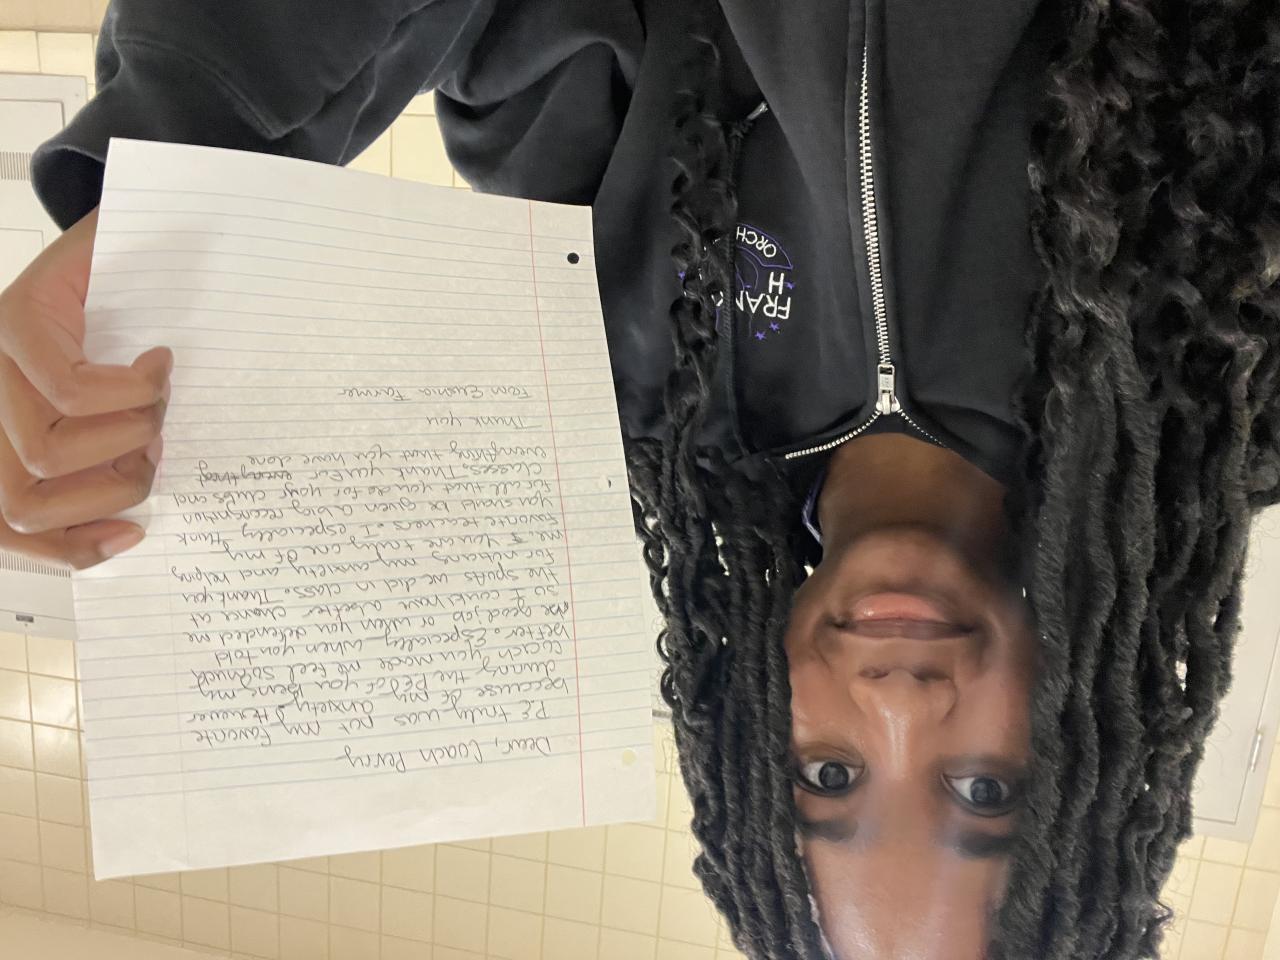 Dear, Coach Perry
PE truly was not my favorite
because of my anxiety, However
during the PE of you being my
coach you made me feel so much
better. Especially when you told
me good job or when you defended me
so I could have a better chance at
the sports we did in class. Thank you
for noticing my anxiety and helping
me. You are truly one of my
favorite teachers. I especially think
you should be given a big recognition
for all that you do for your clubs and
classes. Thank you for everything
everything that you have done
Thank you
From Farmer
FRAN
H
ORCH